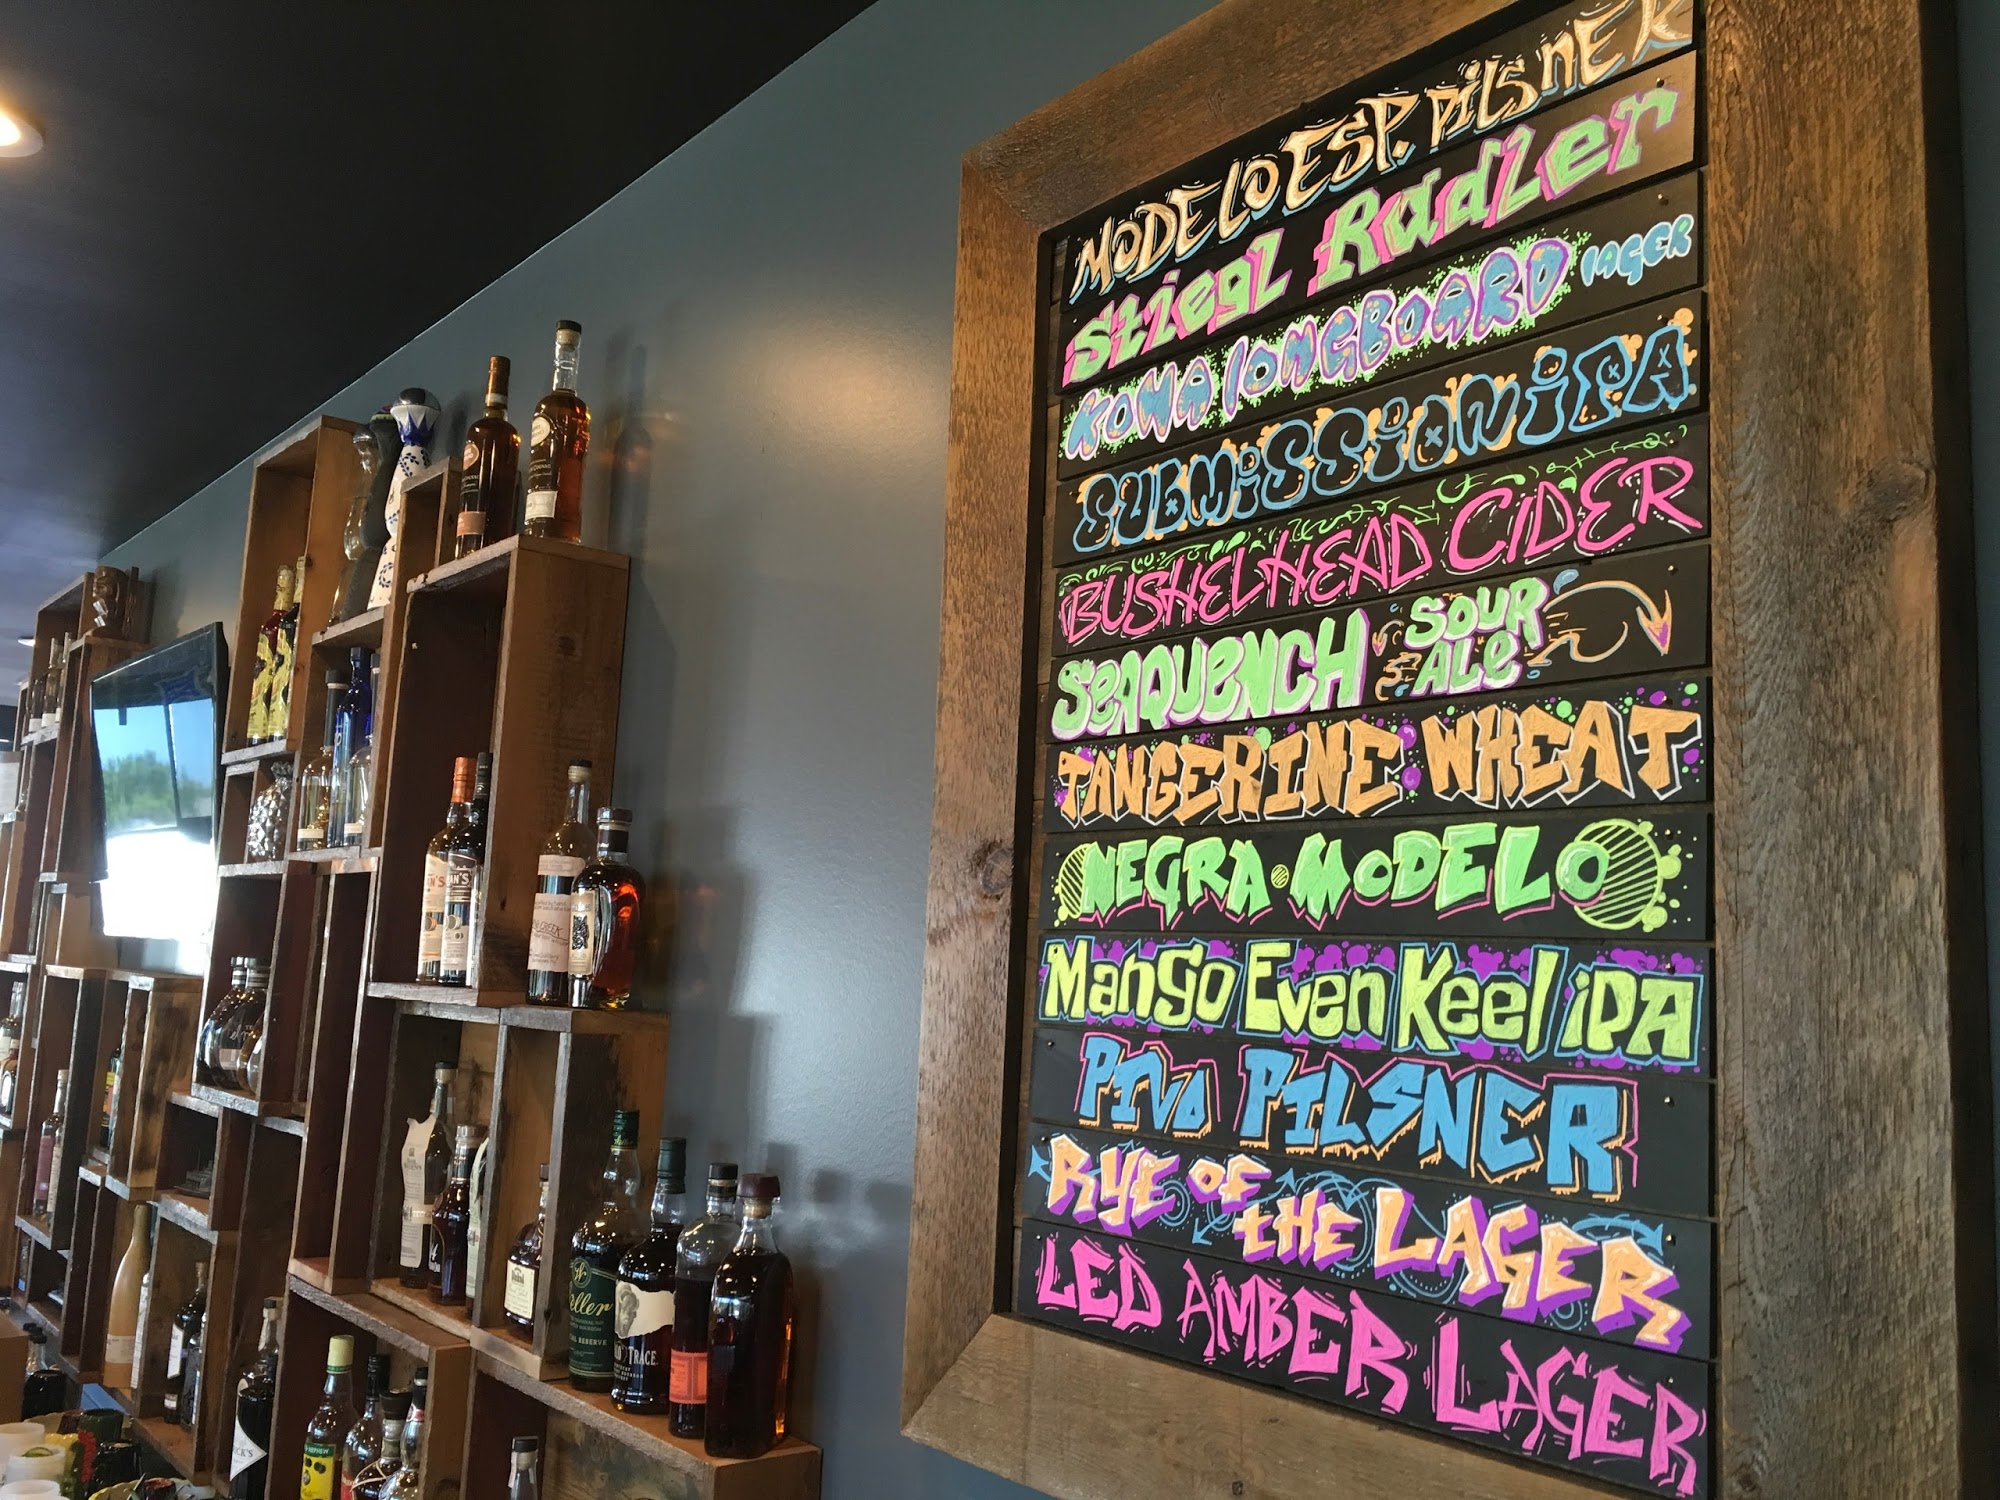 MODELO ESP. PILSNER
Stiegl Radler
KONA LONGBOARD LAGER
SUBMISSION IPA
BUSHELHEAD CIDER
SEAQUENCH SOUR ALE
TANGERINE WHEAT
NEGRA MODELO
Mango Even Keel iPA
PIVO PILSNER
RYE OF tHE LAGER
LED AMBER LAGER
eller
TRACE